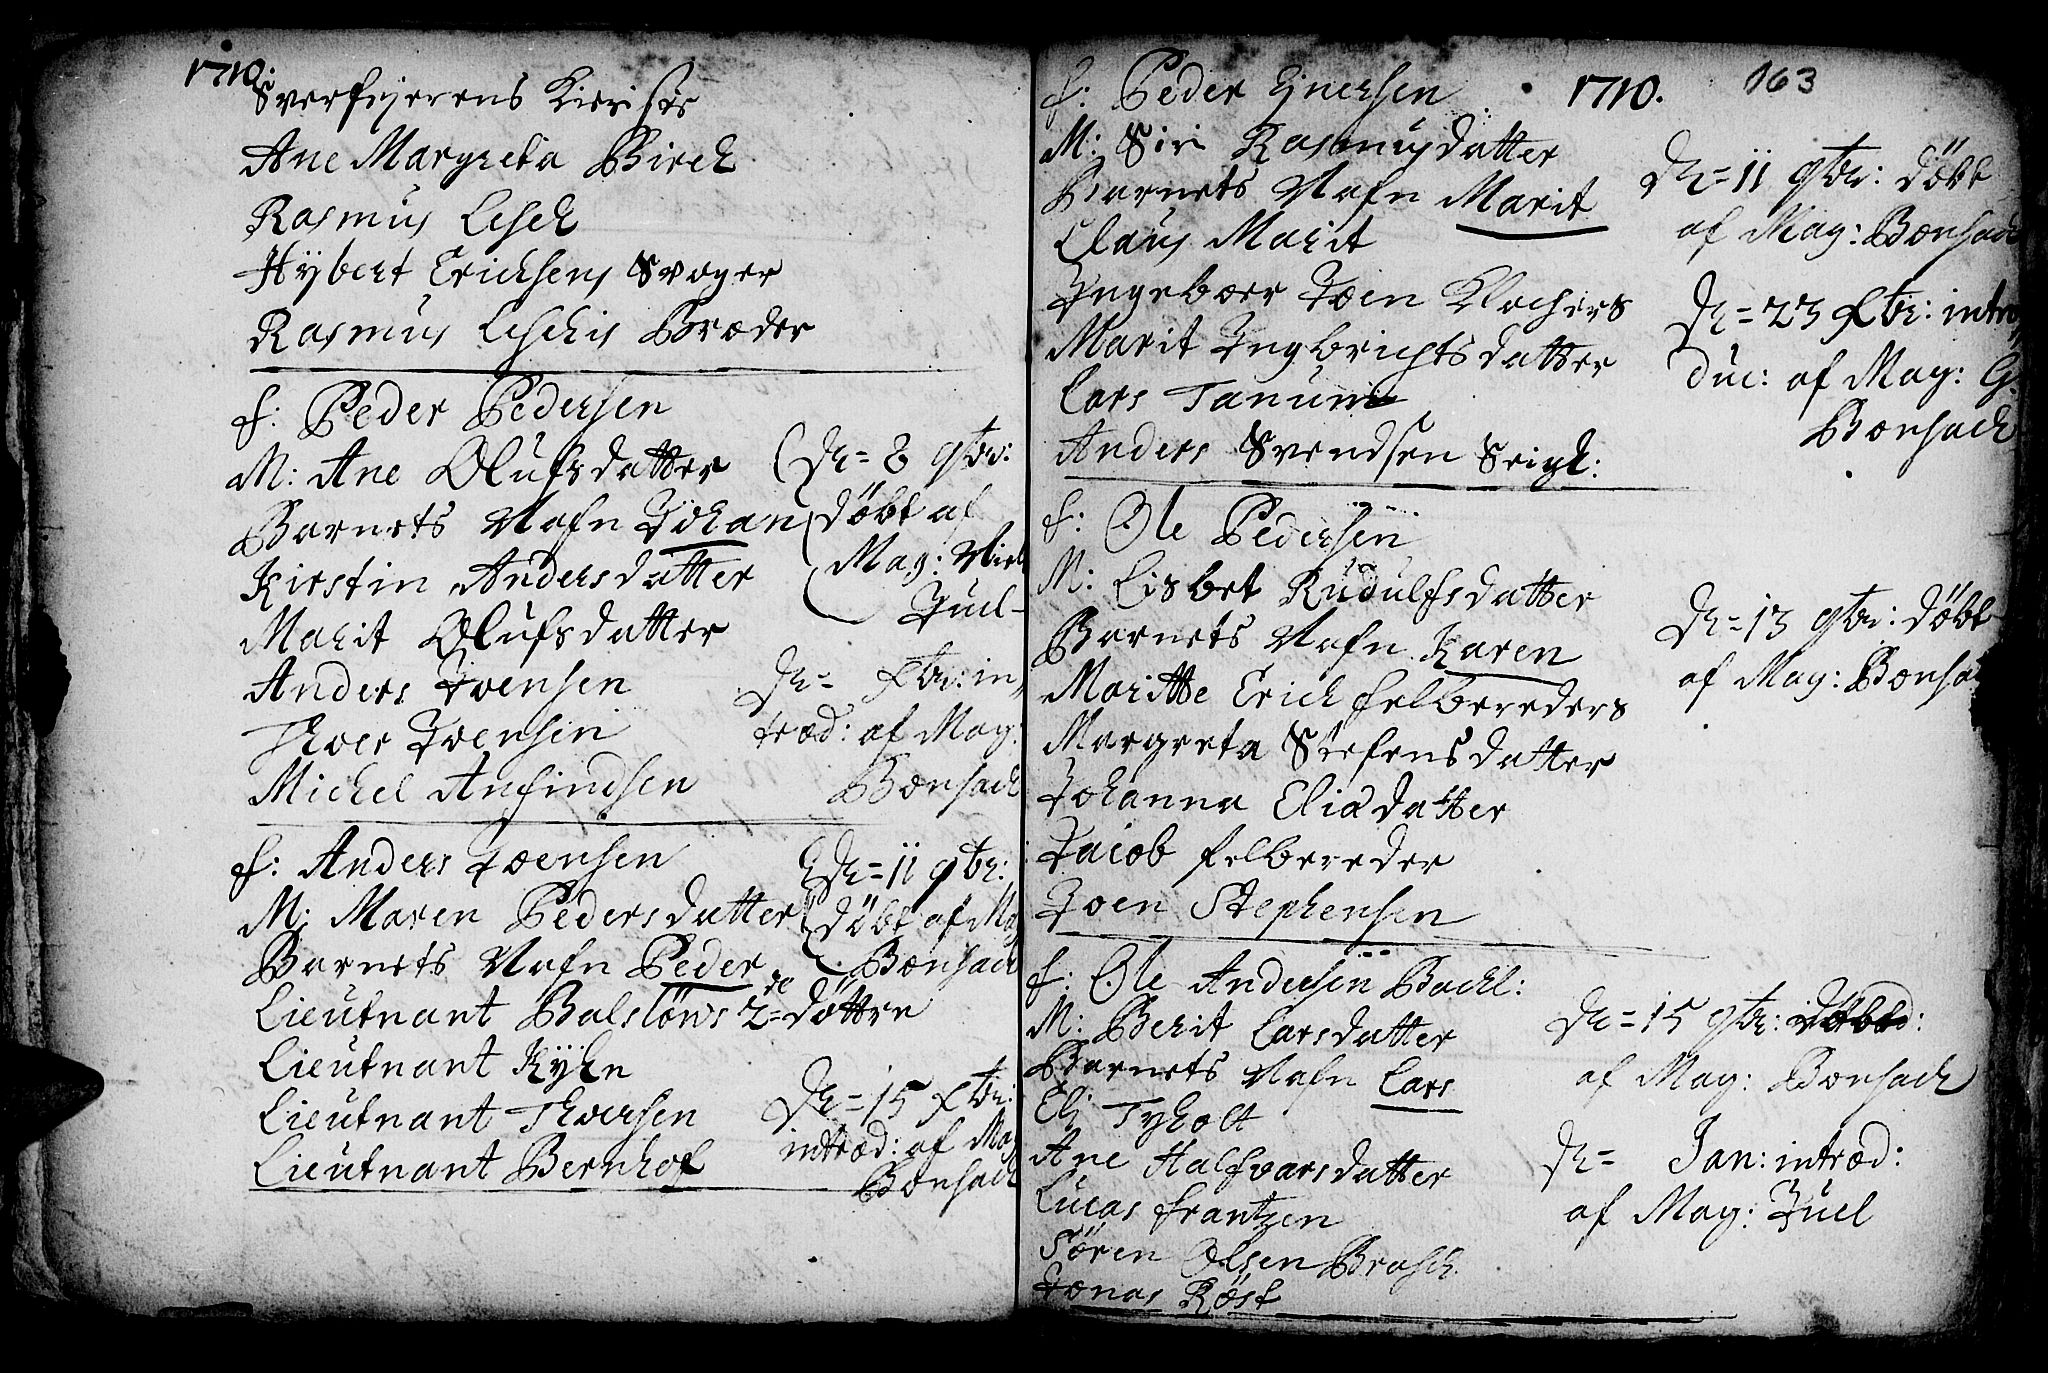 1710.
Sverfejerens Kieriste
Ane Margreta Birch
Rasmus Lesch
Hÿbert Erichsens Svoger
Rasmus Leschis Broder
f: Peder Pedersen
M: Ane Olufsdatter
Barnets Nafn Johan
Kirstin Andersdatter
Marit Olufsdatter
Anders Joensen
Thoer Joensen
Michel Anfindsen
D: = 8 9br:
døbt af
Mag: Niels
Juel
D: = Xbr: in
trod: af Mag:
Bonsach
f: Anders Joensen
M: Maren Pedersdatter
Barnets Nafn Peder
Lieutnant Balslöws 2de döttre
Lieutnant Kyhn
Lieutnant Thoersen
Lieutnant Bernhof
D: = 11 9br:
Döbt af Mag
Bonsach
D: = 15 Xbr:
introd: af Mag
Bonsach
1710. 163
f: Peder Ejnersen
M: Siri Rasmusdatter
Barnets Nafn Marit
Claus Marit
Ingeboer Joen Klochers
Marit Ingbrichtsdatter
Lars Tanum
Anders Svendsen Seigl:
D: = 11 9br: döbt
af Mag: Bonsach
D: = 23 Xbr: intro
duc: af Mag: G.
Bonsach
f: Ole Pedersen
M: Lisbet Rudulfsdatter
Barnets Nafn Karen
Maritte Erich felbereders
Margreta Stefensdatter
Johanna Eliadatter
Jacob felbereder
Joen Stephensen
D: = 13 9br: döbt
af Mag: Bonsach
f: Ole Andersen Bachl:
M: Berit Larsdatter
Barnets Nafn Lars
Eli Tyholt
Ane Halfvarsdatter
Lucas frantzen
Sören Olsen Brasch
Jonas Röst
D: = 15 9br: Döbt:
af Mag: Bonsach
D: = Jan: introd:
af Mag: Juel